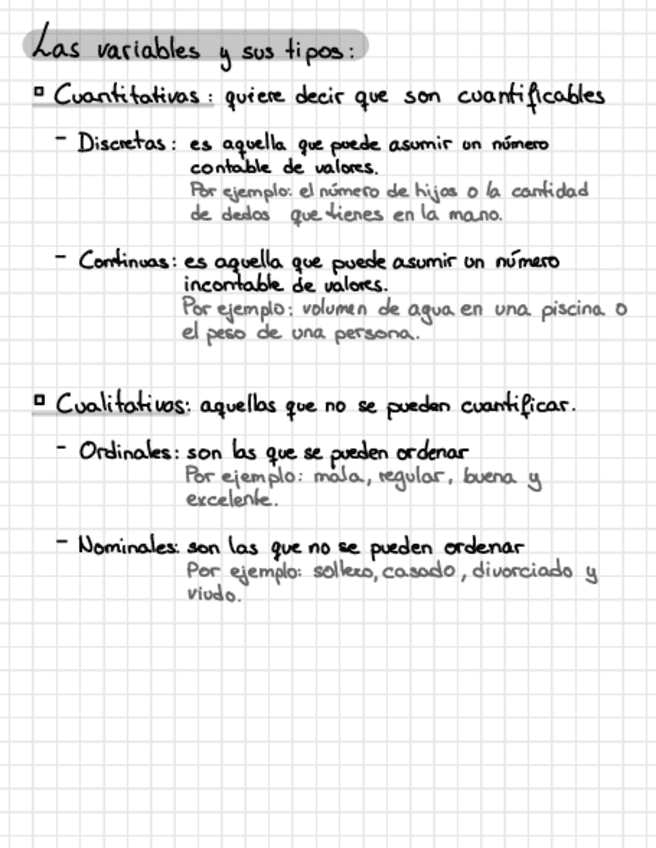 Las variables y sus tipos:
▫ Cuantitativas: quiere decir que son cuantificables
- Discretas: es aquella que puede asumir un número
contable de valores.
Por ejemplo: el número de hijos o la cantidad
de dedos que tienes en la mano.
- Continuas: es aquella que puede asumir un número
incontable de valores.
Por ejemplo: volumen de agua en una piscina o
el peso de una persona.
▫ Cualitativas: aquellas que no se pueden cuantificar.
- Ordinales: son las que se pueden ordenar
Por ejemplo: mala, regular, buena y
excelente.
- Nominales: son las que no se pueden ordenar
Por ejemplo: soltero, casado, divorciado y
viudo.